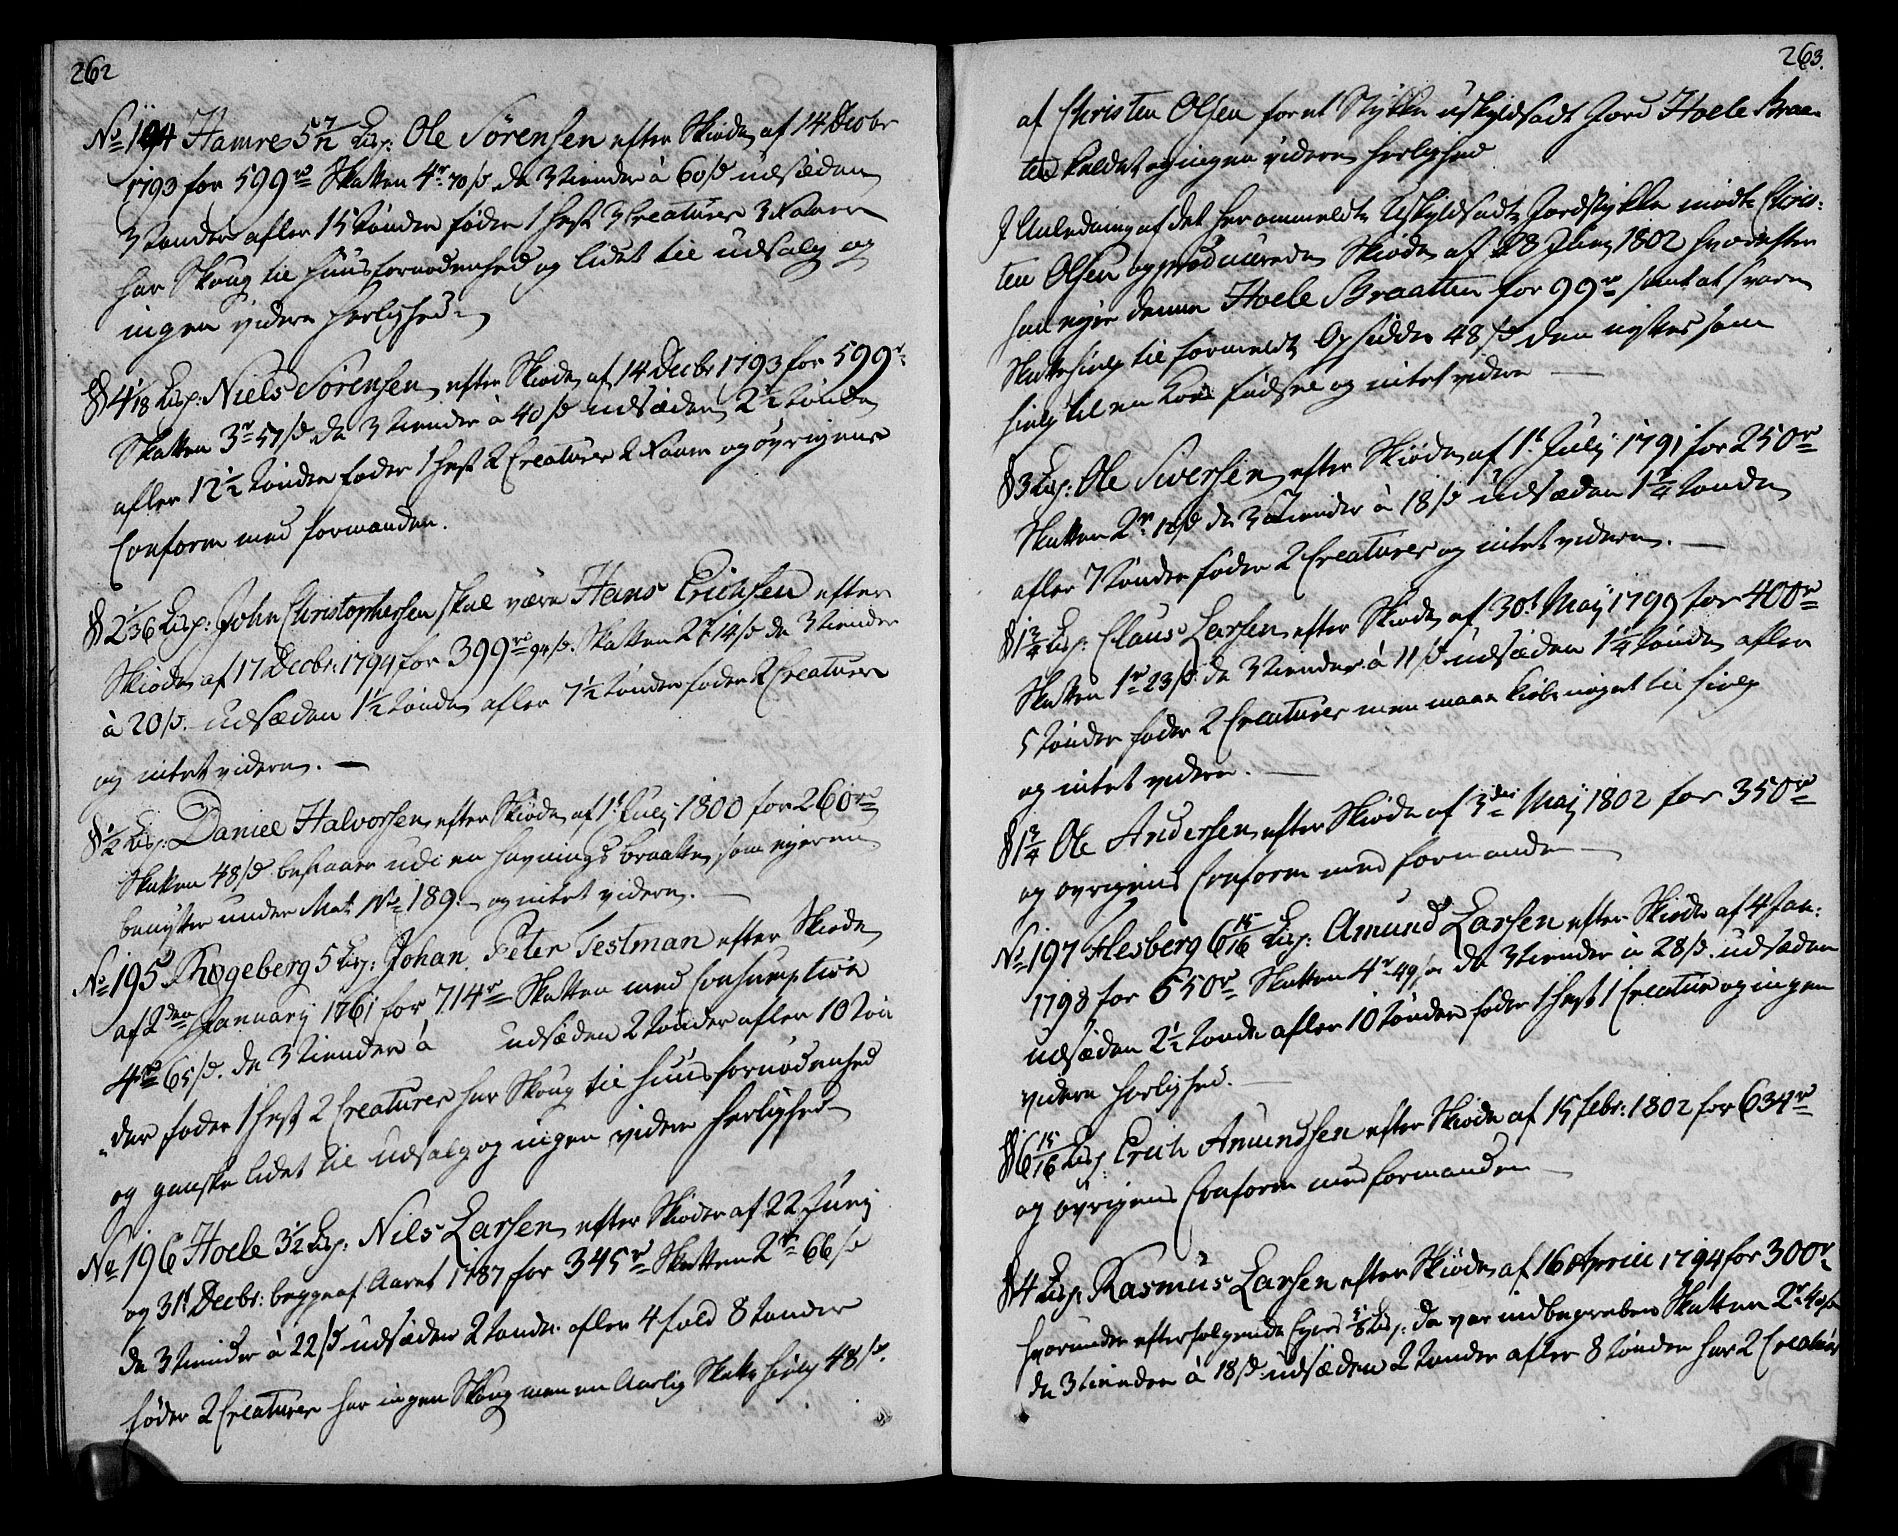 262
No 194 Hamre 5 7/12 Lisp: Ole Sörensen efter Skiöde af 14 Decbr
1793 for 599 rd Skatten 4 r 70 s de 3 tiender à 60 s udsæden
3 tønder afler 15 tønder føder 1 Hest 3 Creaturer 3 Faarer
har Skoug til Huusfornødenhed og lidet til udsalg og
ingen videre Herlighed.
§ 4 1/18 Lisp: Niels Sörensen efter Skiöde af 14 Decbr 1793 for 599 r
Skatten 3 r 57 s de 3 tiender à 40 s udsæden 2 1/2 tønde
afler 12 1/2 tønder føder 1 Hest 2 Creaturer 2 Faarer og øvrigens
Conform med formanden.
§ 2 1/36 Lisp: John Christophersen skal være Hans Erichsen efter
Skiöde af 17 Decbr: 1794 for 399 rd 94 s. Skatten 2 r 14 s de 3 tiender
à 20 s. udsæden 1 1/2 tønde afler 7 1/2 tønder føder 2 Creaturer
og intet videre. —
§ 1/2 Lisp: Daniel Halvorsen efter Skiöde af 1t July 1800 for 260 rd
Skatten 48 s bestaaer udi en havnings braatte, som ejeren
benytter under Mat: No 189. og intet videre. —
No 195 Rogeberg 5 Lisp: Johan Peter Testman efter Skiöde
af 2den January 1761 for 714 r Skatten med Consumption
4 r 65 s. de 3 tiender à udsæden 2 tønder afler 10 tön
der føder 1 Hest 2 Creaturer har Skoug til Huusfornødenhed
og ganske lidet til udsalg og ingen videre Herlighed
No 196 Hoele 3 1/2 Lisp: Nils Larsen efter Skiöder af 22 Juny
og 31t Decbr: begge af Aaret 1787 for 345 r Skatten 2 r 66 s
de 3 tiender à 22 s udsæden 2 tønder afler 4 fold 8 tønder
føder 2 Creaturer har ingen Skoug men en Aarlig Skatte hielp 48 s.
263.
af Christen Olsen for et Stykke uskyldsadt Jord Hoele Braa-
ten kaldet og ingen videre herlighed
J Anledning af det her ommeldte Uskyldsadte Jordstykke mødte Chris-
ten Olsen og producerede Skiöde af 28 Juny 1802 hvorefter
han ejer denne Hoele Braatten for 99 r samt at svare
Skattehielp til formeldte Opsidder 48 s den nyttes som
hielp til en Koes fødsel og intet videre —
§ 3 Lisp: Ole Siversen efter Skiöde af 1t July 1791 for 250 r
Skatten 2 r 10 s de 3 tiender à 18 s udsæden 1 3/4 tønde
afler 7 tønder føder 2 Creaturer og intet videre. —
§ 1 3/4 Lisp: Claus Larsen efter Skiöde af 30t May 1799 for 400 r
Skatten 1 r 23 s de 3 tiender à 11 s udsæden 1 1/4 tønde afler
5 tønder føder 2 Creaturer men maae kiøbe noget til hielp
og intet videre. —
§ 1 3/4 Ole Andersen efter Skiöde af 3die May 1802 for 350 r
og øvrigens Conform med formanden —
No 197 Hesberg 6 15/16 Lisp: Amund Larsen efter Skiöde af 4 Jan:
1798 for 650 r Skatten 4 r 49 s de 3 tiender à 28 s. udsæden
udsæden 2 1/2 tønde afler 10 tønder føder 1 Hest 1 Creatur og ingen
videre herlighed. —
§ 6 15/16 Lisp: Erich Amundsen efter Skiöde af 15 febr: 1802 for 634 r
og øvrigens Conform med formanden —
§ 4 Lisp: Rasmus Larsen efter Skiöde af 16 Aprill 1794 for 300 r
hvorunder efterfølgende Ejers 5/8 Lisp: da var indbegreben Skatten 2 r 40 s
de 3 tiender à 18 s udsæden 2 tønder afler 8 tønder har 2 Creatur